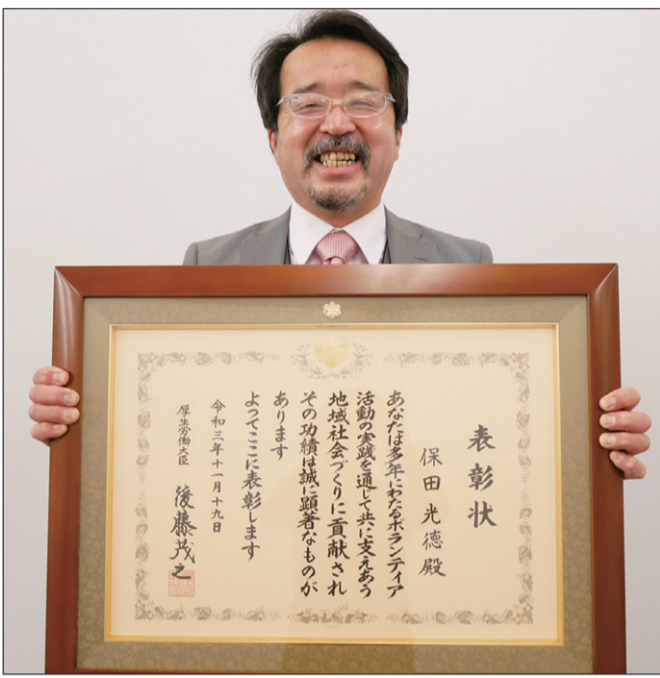 表彰状
保田光徳殿
あなたは多年にわたるボランティア
活動の実践を通じて共に支えあう
地域社会づくりに貢献され
その功績は誠に顕著なものが
あります
よってここに表彰します
令和三年十一月十九日
厚生労働大臣 後藤茂之